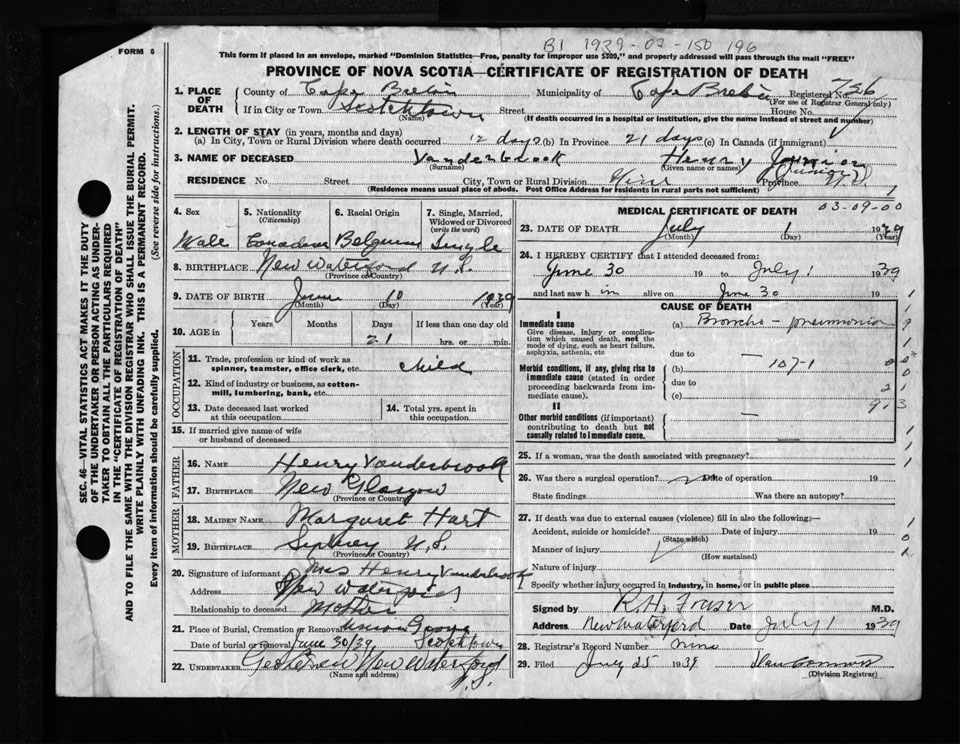 B1 1939-02-150 196
FORM 6
This form if placed in an envelope, marked "Dominion Statistics—Free, penalty for improper use $300," and properly addressed will pass through the mail "FREE"
PROVINCE OF NOVA SCOTIA—CERTIFICATE OF REGISTRATION OF DEATH
1. PLACE OF DEATH County of Cape Breton Municipality of Cape Breton Registered No. 726
(For use of Registrar General only)
If in City or Town Scotchtown Street House No.
(Name) (If death occurred in a hospital or institution, give the name instead of street and number)
2. LENGTH OF STAY (in years, months and days)
(a) In City, Town or Rural Division where death occurred 12 days (b) In Province 21 days (c) In Canada (if immigrant)
3. NAME OF DECEASED Vanderbrook Henry Junior
(Surname) (Given name or names) (Junior)
RESIDENCE No. Street City, Town or Rural Division Province N.S.
(Residence means usual place of abode. Post Office Address for residents in rural parts not sufficient)
4. Sex 5. Nationality (Citizenship) 6. Racial Origin 7. Single, Married, Widowed or Divorced (write the word)
Male Canadian Belgium Single
8. BIRTHPLACE New Waterford N.S.
(Province or Country)
9. DATE OF BIRTH June 10 1939
(Month) (Day) (Year)
10. AGE in Years Months Days If less than one day old
21 hrs. or min.
OCCUPATION
11. Trade, profession or kind of work as spinner, teamster, office clerk, etc. child
12. Kind of industry or business, as cotton-mill, lumbering, bank, etc.
13. Date deceased last worked at this occupation
14. Total yrs. spent in this occupation
15. If married give name of wife or husband of deceased
FATHER
16. NAME Henry Vanderbrook
17. BIRTHPLACE New Glasgow
(Province or Country)
MOTHER
18. MAIDEN NAME Margaret Hart
19. BIRTHPLACE Sydney N.S.
(Province or Country)
20. Signature of informant Mrs Henry Vanderbrook
Address New Waterford
Relationship to deceased Mother
21. Place of Burial, Cremation or Removal Union Grove
Date of burial or removal June 30/39 Scotchtown
22. UNDERTAKER New Waterford
(Name and address) N.S.
MEDICAL CERTIFICATE OF DEATH 03-09-00
23. DATE OF DEATH July 1 1939
(Month) (Day) (Year)
24. I HEREBY CERTIFY that I attended deceased from:
June 30 19 to July 1 1939
and last saw him alive on June 30 19
CAUSE OF DEATH
I
Immediate cause (a) Broncho-pneumonia
Give disease, injury or complication which caused death, not the mode of dying, such as heart failure, asphyxia, asthenia, etc
due to —
Morbid conditions, if any, giving rise to immediate cause (stated in order proceeding backwards from immediate cause).
(b) 107-1
due to
(c)
II
Other morbid conditions (if important) contributing to death but not causally related to immediate cause. —
25. If a woman, was the death associated with pregnancy?
26. Was there a surgical operation? no Date of operation 19
State findings Was there an autopsy?
27. If death was due to external causes (violence) fill in also the following:—
Accident, suicide or homicide? Date of injury 19
(State which)
Manner of injury
(How sustained)
Nature of injury
Specify whether injury occurred in industry, in home, or in public place
Signed by R.H. Fraser M.D.
Address New Waterford Date July 1 1939
28. Registrar's Record Number nine
29. Filed July 25 1939
(Division Registrar)
SEC. 46—VITAL STATISTICS ACT MAKES IT THE DUTY
OF THE UNDERTAKER OR PERSON ACTING AS UNDER-
TAKER TO OBTAIN ALL THE PARTICULARS REQUIRED
IN THE "CERTIFICATE OF REGISTRATION OF DEATH"
AND TO FILE THE SAME WITH THE DIVISION REGISTRAR WHO SHALL ISSUE THE BURIAL PERMIT.
WRITE PLAINLY WITH UNFADING INK. THIS IS A PERMANENT RECORD.
Every item of information should be carefully supplied. (See reverse side for instructions.)